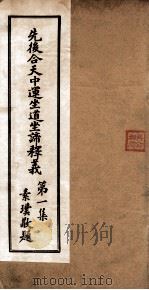 先後合天中運坐道坐諦釋義
第一集
素璞敬題